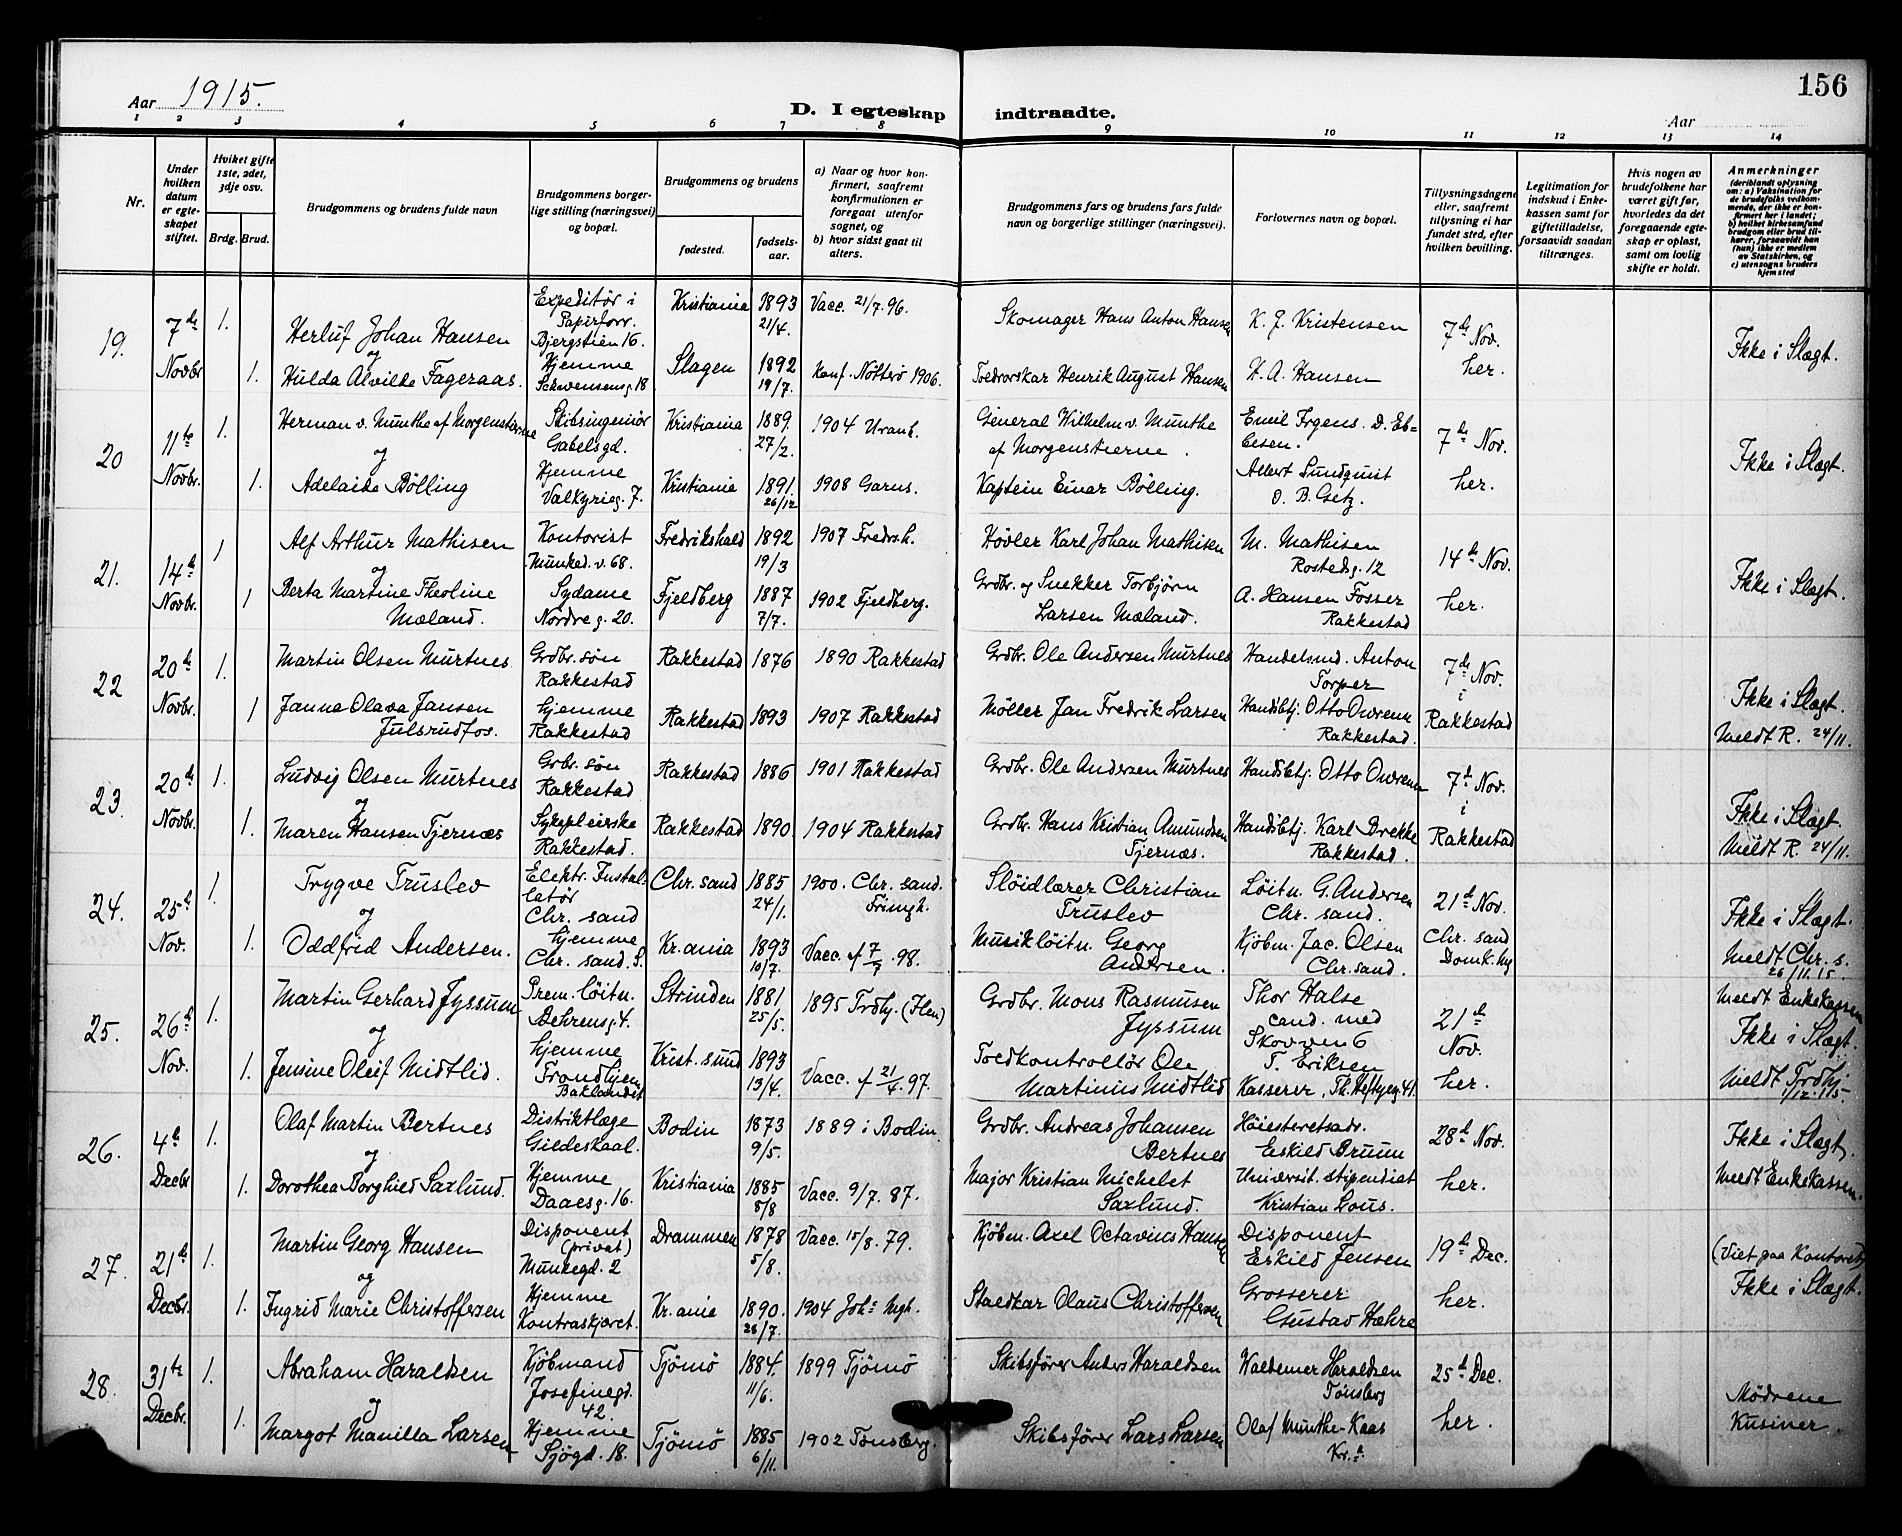 Aar 1915.
D. I egteskap indtraadte.
Aar
156
1 2 3 4 5 6 7 8 9 10 11 12 13 14
Nr.
Under hvilken datum er egteskapet stiftet.
Hvilket gifte 1ste, 2det, 3dje osv.
Brdg. Brud.
Brudgommens og brudens fulde navn
Brudgommens borgerlige stilling (næringsvei) og bopæl.
Brudgommens og brudens
fødested.
fødselsaar.
a) Naar og hvor konfirmert, saafremt konfirmationen er foregaat utenfor sognet, og
b) hvor sidst gaat til alters.
Brudgommens fars og brudens fars fulde navn og borgerlige stillinger (næringsvei).
Forlovernes navn og bopæl.
Tillysningsdagene eller, saafremt tillysning ei har fundet sted, efter hvilken bevilling.
Legitimation for indskud i Enkekassen samt for giftetilladelse, forsaavidt saadan tiltrænges.
Hvis nogen av brudefolkene har været gift før, hvorledes da det foregaaende egteskap er opløst, samt om lovlig skifte er holdt.
Anmerkninger
(deriblandt oplysning om: a) Vaksination for de brudefolks vedkommende, der ikke er konfirmert her i landet;
b) hvilket kirkesamfund brudgom eller brud tilhører, forsaavidt han (hun) ikke er medlem av Statskirken, og
c) utensogns bruders hjemsted
19. 7de Novbr 1. Herluf Johan Hansen Expeditør i Papirforr. Bjergstien 16. Kristiania 1893 21/4. Vacc. 21/7. 96. Skomager Hans Anton Hansen K. J. Kristensen 7de Nov. Ikke i Slægt.
og
1. Hulda Alvilde Fageraas. Hjemme Schwensensg. 18 Slagen 1892 19/7. Konf. Nötterö 1906. H. A. Hansen her.
20 11te Novbr. 1. Herman v. Munthe af Morgenstierne Skibsingeniør Gabelsgd. Kristiania 1889. 27/2. 1904 Uranb. General Wilhelm v. Munthe af Morgenstierne. Emil Irgens. D. Ebbesen. 7de Nov. Ikke i Slægt.
og
1. Adelaide Bölling Hjemme Valkyrieg. 7. Kristiania 1891. 26/12 1908 Garns. Kaptein Einar Bölling. Albert Sundquist O. B. Getz. her.
21. 14de Novbr. 1 Alf Arthur Mathisen Kontorist Munked. v. 68. Fredrikshald 1892 19/3 1907 Fredrsh. Høvler Karl Johan Mathisen M. Mathisen Rostedsg. 12 14de Nov. Ikke i Slægt.
og
1 Berta Martine Theoline Mæland. Sydame Nordreg. 20. Fjeldberg 1887 7/7. 1902 Fjeldberg. Grdbr. og Snekker Torbjörn Larsen Mæland. A. Hansen Fosser Rakkestad her.
22 20de Novbr. 1. Martin Olsen Murtnes Grdbr. søn Rakkestad Rakkestad 1876 1890 Rakkestad Grdbr. Ole Andersen Murtnes Handelsmd. Anton Torper 7de Nov. i Rakkestad Ikke i Slægt. Meldt R. 24/11.
1 Janna Olava Jansen Julsrudfos. Hjemme Rakkestad Rakkestad 1893 1907 Rakkestad Möller Jan Fredrik Larsen Handlsbtj. Otto Overenn Rakkestad.
23. 20de Novbr. 1. Ludvig Olsen Murtnes Grbr. søn Rakkestad Rakkestad 1886 1901 Rakkestad Grdbr. Ole Andersen Murtnes Handlsbtj. Otto Overenn 7de Nov. i Rakkestad Ikke i Slægt. Meldt R. 24/11.
og
1. Maren Hansen Tjernæs Sykepleierske Rakkestad. Rakkestad 1890. 1904 Rakkestad Grdbr. Hans Kristian Amundsen Tjernæs. Handlsbtj. Karl Drekke Rakkestad.
24. 25de Nov. 1. Trygve Truslev Elektr. Installatør Chr. sand Chr. sand 1885 24/1. 1900. Chr. sand. Sløidlærer Christian Truslev Löitn. G. Andersen Chr. sand. 21de Nov. Chr. sand Domk. Ikke i Slægt. Meldt Chr. s. 26/11. 15.
og
1. Oddfrid Andersen. Hjemme Chr. sand. S. Kr.ania 1893 10/7. Vacc. 98. Musiklöitn. Georg Andersen. Kjøbm. Jac. Olsen Chr. sand.
25. 26de Nov. 1. Martin Gerhard Jyssum Prem. löitn. Behrensg. 4. Strinden 1881 25/5. 1895 Trdhj. (Ilen) Grdbr. Mons Rasmusen Jyssum Thor Halse cand. med Skovvn 6 21de Nov. her. Meldt Enkekassen Ikke i Slægt. Meldt Trdhj. 1/12. 15.
og
1. Jensine Oleif Midtlid. Hjemme Trondhjem Baklandet Krist. sund 1893 13/4. Vacc. 21/4. 97. Toldkontrollör Ole Martinius Midtlid T. Eriksen Kasserer, Th. Heftyesg. 41.
26. 4de Decbr 1. Olaf Martin Bertnes Distriktlæge Gildeskaal. Bodin 1873 9/5. 1889 i Bodin Grdbr. Andreas Johansen Bertnes Høiesteretsadv. Eskild Bruun 28de Nov. her. Ikke i Slægt. Meldt Enkekassen.
og
1. Dorothea Borghild Saxlund. Hjemme Daaesg. 16. Kristiania 1885 5/8 Vacc. 9/7. 87. Major Kristian Michelet Saxlund. Universit. stipendiat Kristian Lous.
27. 21de Decbr. 1. Martin Georg Hansen Disponent (privat) Munkegd. 2 Drammen 1878 5/8. Vacc. 15/8. 79. Kjøbm. Axel Octavius Hansen Disponent Eskild Jensen 19de Dec. her. (Viet paa Kontoret) Ikke i Slægt.
og
1. Ingrid Marie Christoffersen Hjemme Kontraskjæret. Kr.ania 1890. 26/7. 1904 Joh: Staldkar Olaus Christoffersen Grosserer Gustav Hæhre
28. 31te Decbr. 1. Abraham Haraldsen Kjøbmand Josefinegd. 42. Tjömö 1884. 11/6. 1899 Tjömö Skibsfører Anders Haraldsen Waldemar Haraldsen Tönsberg 25de Dec. her. Mödrene Kusiner.
og
1. Margot Manilla Larsen Hjemme Sjøgd. 18. Tjömö 1885 6/11. 1902 Tönsberg. Skibsfører Lars Larsen Olaf Munthe-Kaas Kr.a